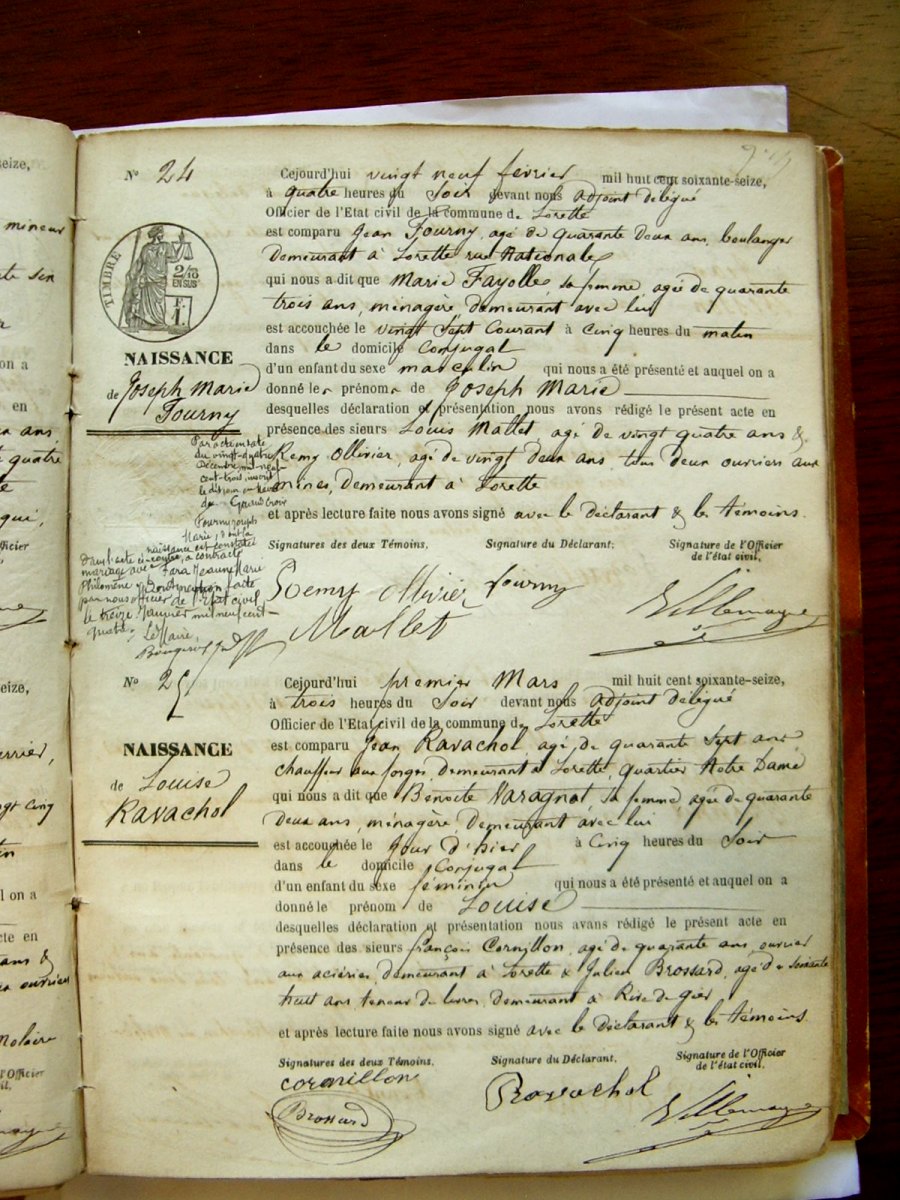 eize,
mineur
on a
en
quatre
officier
il,
eize,
gt Cinq
l on a
cte en
Molaire
l'Officier
il,
N° 24
TIMBRE
2/10
EN SUS
NAISSANCE
de Joseph Marie
Fourny
Cejourd'hui vingt neuf février mil huit cent soixante-seize,
à quatre heures du Soir devant nous adjoint délégué
Officier de l'Etat civil de la commune de Lorette
est comparu Jean Fourny, agé de quarante deux ans, boulanger
demeurant à Lorette rue Nationale
qui nous a dit que Marie Fayolle, sa femme, agée de quarante
trois ans, ménagère, demeurant avec lui
est accouchée le vingt Sept Courant à Cinq heures du matin
dans le domicile Conjugal
d'un enfant du sexe masculin qui nous a été présenté et auquel on a
donné les prénoms de Joseph Marie
desquelles déclaration et présentation nous avons rédigé le présent acte en
présence des sieurs Louis Mallet, agé de vingt quatre ans &
Remy Ollivier, agé de vingt deux ans, tous deux ouvriers aux
mines, demeurant à Lorette
et après lecture faite nous avons signé avec le déclarant & les témoins.
Par acte en date
du vingt-quatre
Décembre mil neuf
cent-trois, inscrit
Fourny Joseph
Marie, dont la
naissance est constatée
dans l'acte ci-contre, a contracté
mariage avec Fara Jeanne Marie
Philomène
par nous officier de l'Etat civil
le treize Janvier mil neuf cent
quatre
Le Maire,
Signatures des deux Témoins, Signature du Déclarant; Signature de l'Officier
de l'état civil,
Remy Ollivier Fourny
Mallet Villemagne
N° 25
NAISSANCE
de Louise
Ravachol
Cejourd'hui premier Mars mil huit cent soixante-seize,
à trois heures du Soir devant nous adjoint délégué
Officier de l'Etat civil de la commune de Lorette
est comparu Jean Ravachol, agé de quarante Sept ans,
chauffeur aux forges, demeurant à Lorette, quartier Notre Dame
qui nous a dit que Benoite Varagnat, sa femme, agée de quarante
deux ans, ménagère, demeurant avec lui
est accouchée le Jour d'hier à Cinq heures du Soir
dans le domicile Conjugal
d'un enfant du sexe féminin qui nous a été présenté et auquel on a
donné le prénom de Louise
desquelles déclaration et présentation nous avons rédigé le présent acte en
présence des sieurs françois Cornillon, agé de quarante ans, ouvrier
aux aciéries, demeurant à Lorette & Julien Brossard, agé de soixante
huit ans, teneur de livres, demeurant à Rive de gier
et après lecture faite nous avons signé avec le déclarant & les témoins.
Signatures des deux Témoins, Signature du Déclarant, Signature de l'Officier
de l'état civil,
cornillon Ravachol
Brossard Villemagne